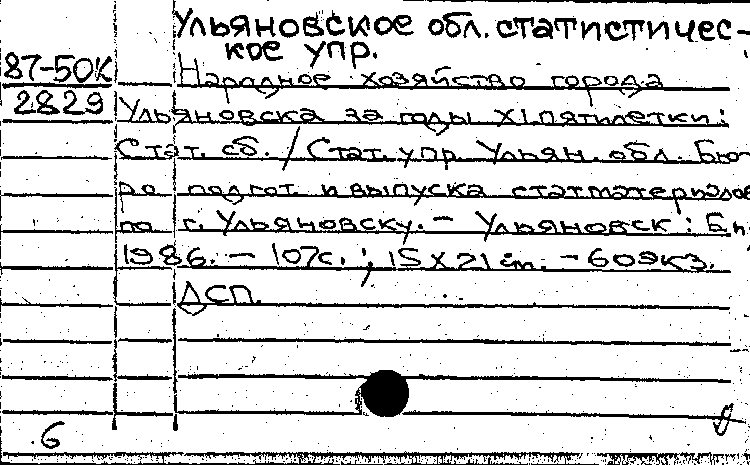 Ульяновское обл. статистичес-
кое упр.
87-50К
Народное хозяйство города
2829
Ульяновска за годы XI пятилетки:
Стат. сб. / Стат. упр. Ульян. обл. Бю-
ро подгот. и выпуска статматериалов
по г. Ульяновску. – Ульяновск: Б.и.
1986. – 107с.; 15X21 см. – 60экз.
ДСП.
6